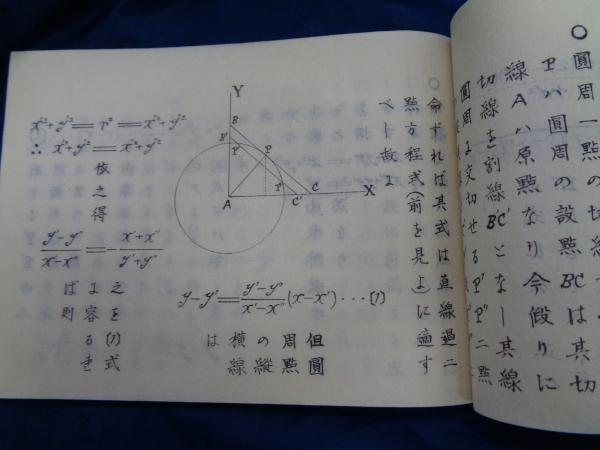 〇圓周一點の切
Pハ圓周の設點BCは其切
線Aハ原點なり今假りに
切線を割線BC'となし其線
圓周と交切せるP'P''二點
命ずれば其式は眞線過二
點方程式(前を見よ)に適す
べし故よ
Y
B
B'
P''
P
P'
A
C'
C
X
y-y'=\frac{y'-y''}{x'-x''}(x-x')・・・(1)
但圓
周點
の縱
橫線
は
x'^2+y'^2=r^2=x''^2+y''^2
∴ x'^2+y'^2=x''^2+y''^2
依之得
\frac{y'-y''}{x'-x''}=-\frac{x'+x''}{y'+y''}
之を(1)式
よ容るき
ば則